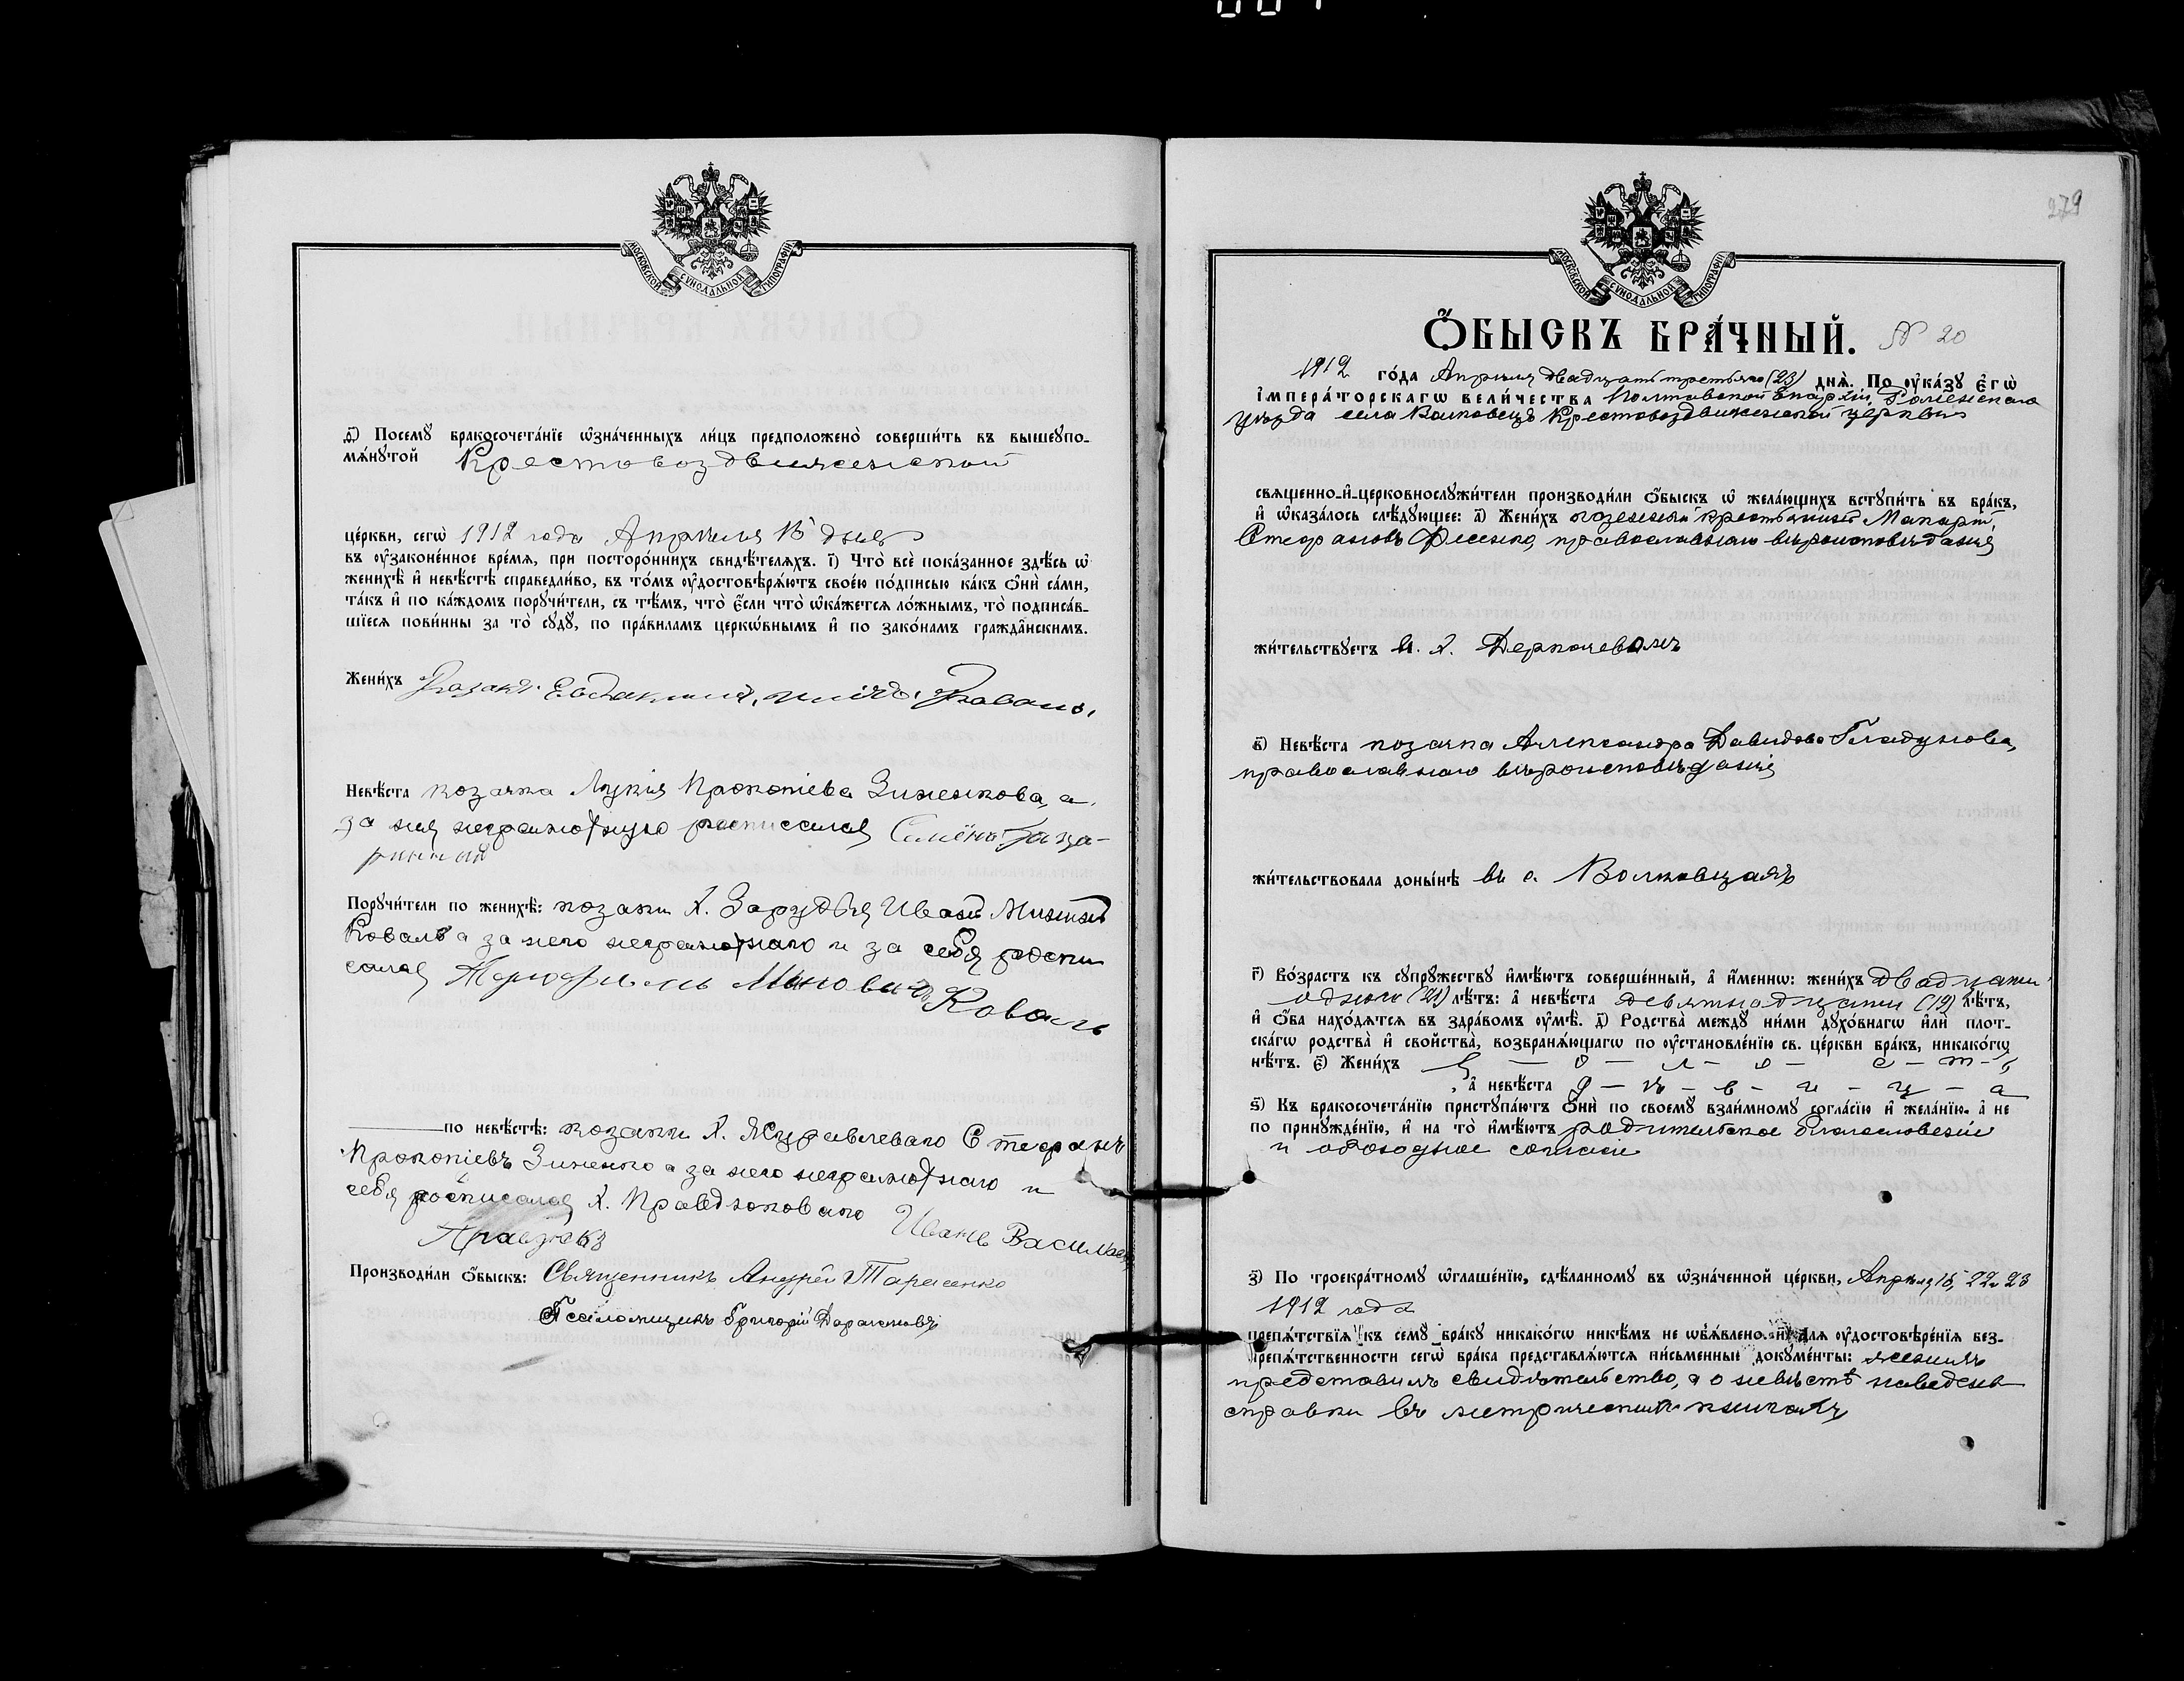 МОСКОВСКОЙ СѴНОДАЛЬНОЙ ТИПОГРАФІИ
д҃) Посемꙋ бракосочета́нїе ѡ҆зна́ченныхъ ли́цъ предположено̀ соверши́ть въ вышеꙋпо-
мѧ́нꙋтой Крестовоздвиженской
це́ркви, сегѡ̀ 1912 года Апрѣля 15 дня
въ ᲂу҆законе́нное вре́мѧ, при посторо́ннихъ свидѣ́телѧхъ. і҃) Что̀ всѐ пока́занное здѣ́сь ѡ҆
женихѣ̀ и҆ невѣ́стѣ справедли́во, въ то́мъ ᲂу҆достовѣрѧ́ютъ свое́ю по́дписью ка́къ ѻ҆нѝ са́ми,
та́къ и҆ по ка́ждомъ порꙋчи́тели, съ тѣ́мъ, что̀ є҆́сли что̀ ѡ҆ка́жетсѧ ло́жнымъ, то̀ подписа́в-
шїесѧ пови́нны за то̀ сꙋдꙋ̀, по пра́виламъ церкѡ́внымъ и҆ по зако́намъ гражда̂нскимъ.
Жени́хъ Козакъ Евдакимъ Коваль
Невѣ́ста козачка Лукія Прокопіева Зиненкова, а
за нея неграмотную росписался Семёнъ
Порꙋчи́тели по женихѣ̀: козаки х. Зарудья Иванъ Мининъ
Коваль а за него неграмотнаго и за себя роспи
сался Миновичъ Коваль
по невѣ́стѣ: козаки х. Журавлеваго Стефанъ
Прокопіевъ Зиненко а за него неграмотнаго и
себя росписался х. Правдюковаго Иванъ Васильевъ
Правдюкъ
Производи́ли ѻ҆́быскъ: Священникъ Андрей Тарасенко
Псаломщикъ Григорій
279
МОСКОВСКОЙ СѴНОДАЛЬНОЙ ТИПОГРАФІИ
Ѻ҆́БЫСКЪ БРА́ЧНЫЙ. № 20
1912 го́да Апрѣля двадцать третьяго (23) днѧ̀. По ᲂу҆ка́зꙋ є҆гѡ̀
і҆мпера́торскагѡ вели́чества Полтавской Епархіи, Роменскаго
уѣзда села Волковецъ Крестовоздвиженской церкви
свѧщенно-и҆-церковнослꙋжи́тели производи́ли ѻ҆́быскъ ѡ҆ жела́ющихъ встꙋпи́ть въ бра́къ,
и҆ ѡ҆каза́лось слѣ́дꙋющее: а҃) Жени́хъ казенный крестьянинъ Макарій
Стефановъ Фесенко, православнаго вѣроисповѣданія
жи́тельствꙋетъ въ х. Деркачевомъ
в҃) Невѣ́ста козачка Александра Давидова Гладунова,
православнаго вѣроисповѣданія
жи́тельствовала доны́нѣ въ с. Волковцахъ
г҃) Во́зрастъ къ сꙋпрꙋ́жествꙋ и҆мѣ́ютъ соверше́нный, а҆ и҆́меннѡ: жени́хъ двадцати
одного (21) лѣ́тъ: а҆ невѣ́ста девятнадцати (19) лѣ́тъ,
и҆ ѻ҆́ба нахо́дѧтсѧ въ здра́вомъ ᲂу҆мѣ̀. д҃) Родства̀ междꙋ̀ ни́ми дꙋхо́внагѡ и҆лѝ плот-
ска́гѡ родства̀ и҆ свойства̀, возбранѧ́ющагѡ по ᲂу҆становле́нїю св. це́ркви бра́къ, никако́гѡ
нѣ́тъ. є҃) Жени́хъ х — о — л — о — с — т — ъ
, а҆ невѣ́ста д — ѣ — в — и — ц — а
ѕ҃) Къ бракосочета́нїю пристꙋпа́ютъ ѻ҆нѝ по своемꙋ̀ взаи́мномꙋ согла́сїю и҆ жела́нїю, а҆ не
по принꙋжде́нїю, и҆ на то̀ и҆мѣ́ютъ родительское благословеніе
и обоюдное согласіе
з҃) По троекра́тномꙋ ѡ҆глаше́нїю, сдѣ́ланномꙋ въ ѡ҆зна́ченной це́ркви, Апрѣля 15, 22 и 23
1912 года
препѧ́тствїѧ къ семꙋ̀ бра́кꙋ никако́гѡ никѣ́мъ не ѡ҆б̾ѧ́влено. и҆ длѧ ᲂу҆достовѣре́нїѧ без-
препѧ́тственности сегѡ̀ бра́ка представлѧ́ютсѧ пи́сьменные докꙋме́нты: женихъ
представилъ свидѣтельство, а о невѣстѣ наведены
справки въ метрическихъ книгахъ